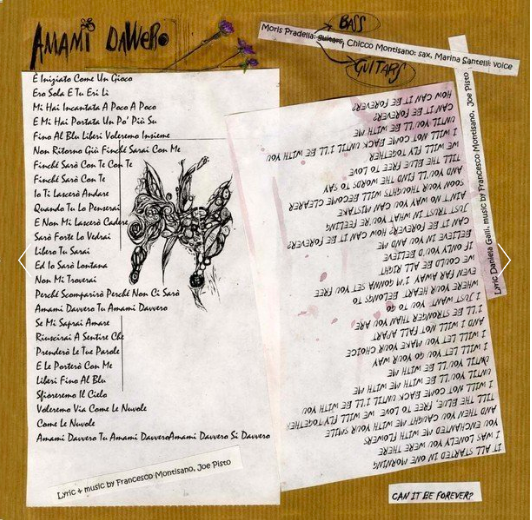 AMAMI DAVVERO
BASS
Moris Pradella: guitars, Chicco Montisano: sax, Marina Santelli: voice
GUITARS
È Iniziato Come Un Gioco
Ero Sola E Tu Eri Lì
Mi Hai Incantata A Poco A Poco
E Mi Hai Portata Un Po' Più Su
Fino Al Blu Liberi Voleremo Insieme
Non Ritorno Già Finchè Sarai Con Me
Finchè Sarò Con Te Con Te
Finchè Sarò Con Te
Io Ti Lascerò Andare
Quando Tu Lo Penserai
E Non Mi Lascerò Cadere
Sarò Forte Lo Vedrai
Libero Tu Sarai
Ed Io Sarò Lontana
Non Mi Troverai
Perchè Scomparirò Perchè Non Ci Sarò
Amami Davvero Tu Amami Davvero
Se Mi Saprai Amare
Riuscirai A Sentire Che
Prenderò Le Tue Parole
E Le Porterò Con Me
Liberi Fino Al Blu
Sfioreremo Il Cielo
Voleremo Via Come Le Nuvole
Come Le Nuvole
Amami Davvero Tu Amami DavveroAmami Davvero Si Davvero
Lyric + music by Francesco Montisano, Joe Pisto
Lyric Daniela Galli, music by Francesco Montisano, Joe Pisto
IT ALL STARTED IN ONE MORNING
I WAS LONELY YOU WERE THERE
YOU ENCHANTED ME WITH FLOWERS
AND THEN YOU CAUGHT ME WITH YOUR SMILE
TILL THE BLUE, FREE TO LOVE WE WILL FLY TOGETHER
I WILL NOT COME BACK UNTIL I'LL BE WITH YOU
UNTIL YOU'LL BE WITH ME WITH ME
UNTIL YOU'LL BE WITH ME
I WILL LET YOU GO YOUR WAY
I WILL LET YOU MAKE YOUR CHOICE
AND I WILL NOT FALL APART
I'LL BE STRONGER THAN YOU ARE
I JUST WANT YOU TO GO
WHERE YOUR HEART BELONGS TO
EVEN FAR AWAY I'M GONNA SET YOU FREE
WE COULD BE ALL RIGHT
IF ONLY YOU BELIEVE
BELIEVE IN YOU AND ME
CAN IT BE FOREVER? HOW CAN IT BE FOREVER?
TRUST IN WHAT YOU'RE FEELING
AIN'T NO WAY YOU CAN MISTAKE
SOON YOUR THOUGHTS WILL BECOME CLEARER
AND YOU'LL FIND THE WORDS TO SAY
TILL THE BLUE, FREE TO LOVE
WE WILL FLY TOGETHER
I WILL NOT COME BACK UNTIL I'LL BE WITH YOU
UNTIL YOU'LL BE WITH ME
CAN IT BE FOREVER?
HOW CAN IT BE FOREVER?
CAN IT BE FOREVER?